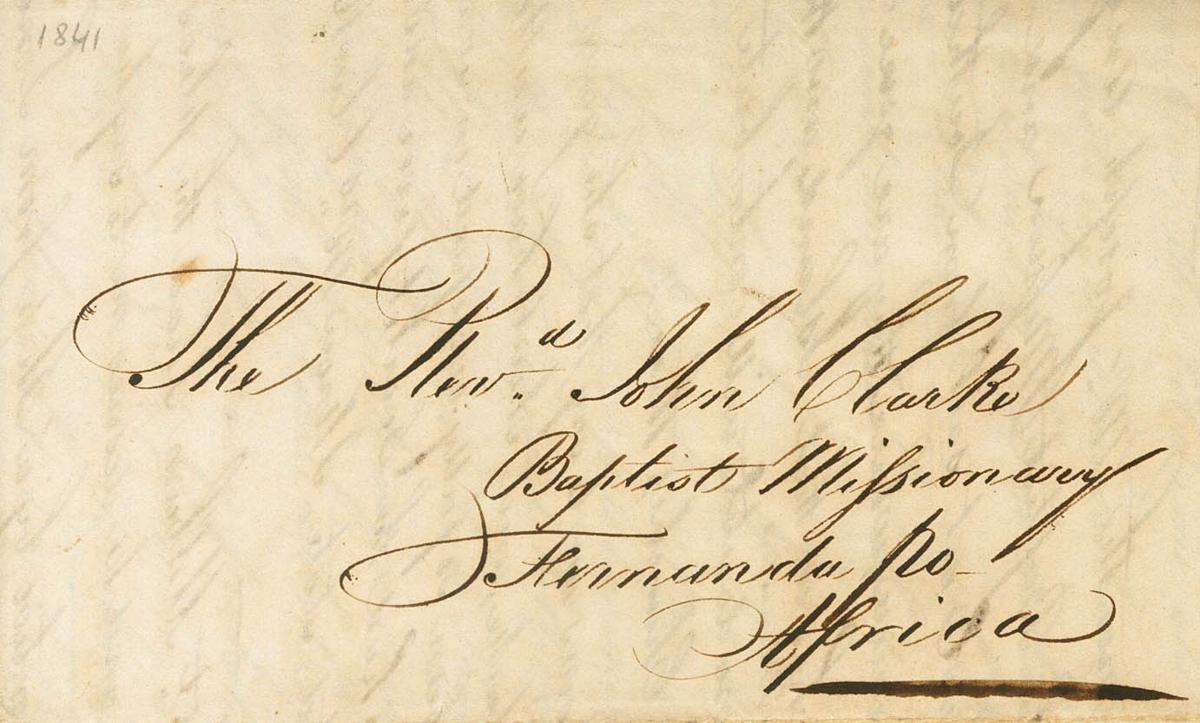 1841
The Revd. John Clarke
Baptist Missionary
Fernanda Po
Africa